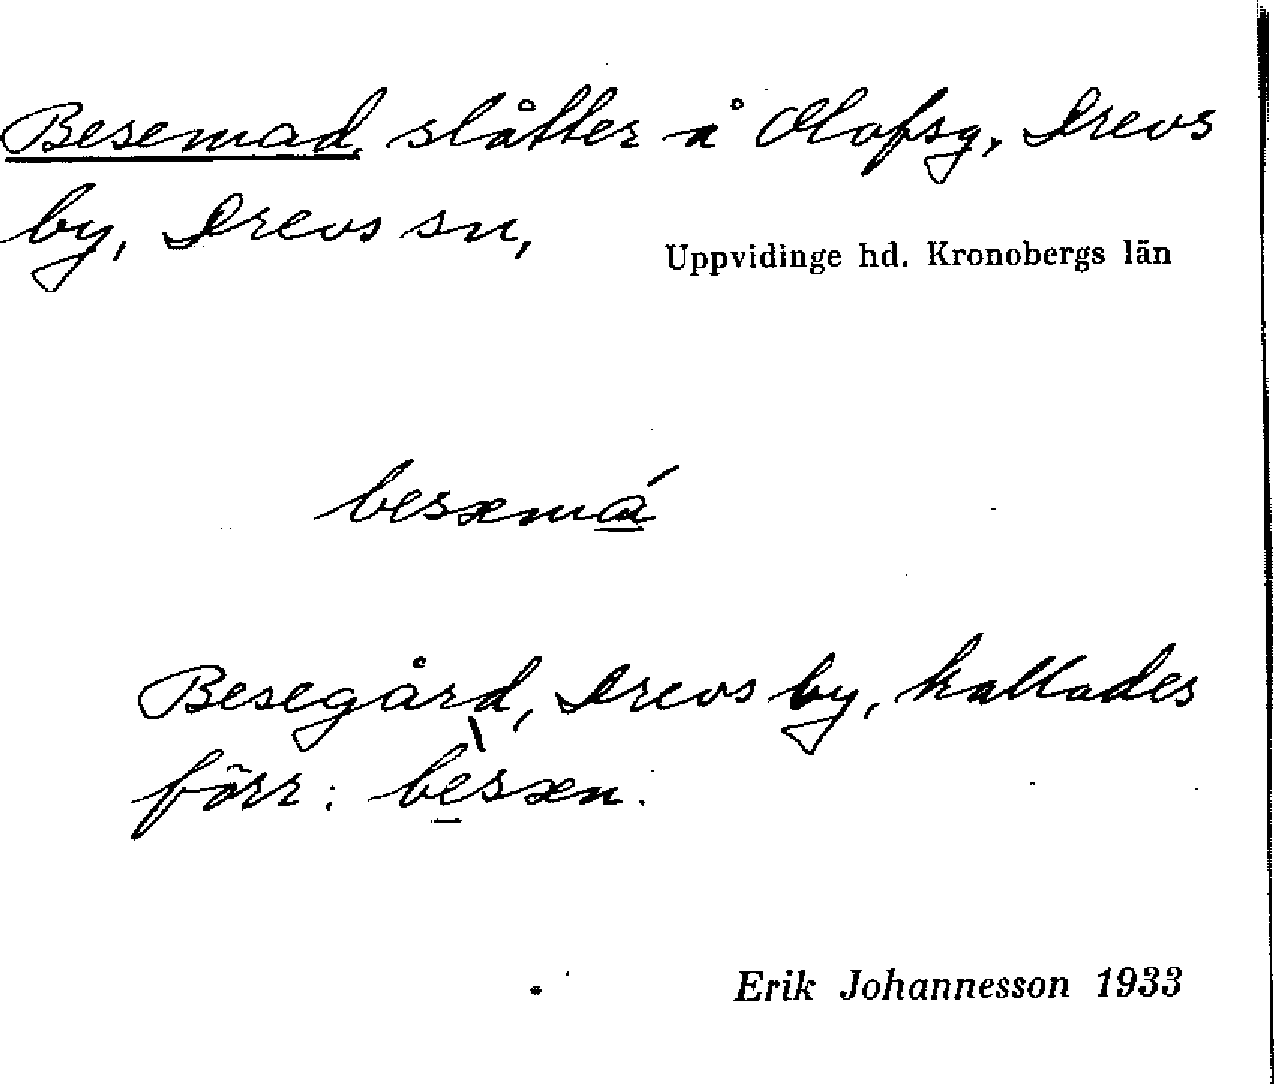 Besemad, slåtter å Olofsg, Drevs
by, Drevs sn,
Uppvidinge hd. Kronobergs län
besæmá
Besegård, Drevs by, kallades
förr: bèsæn.
Erik Johannesson 1933